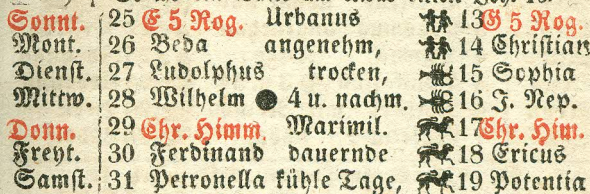 Sonnt. 25 E 5 Rog. Urbanus 13 G 5 Rog.
Mont. 26 Beda angenehm, 14 Christian
Dienst. 27 Ludolphus trocken, 15 Sophia
Mittw. 28 Wilhelm ● 4 u. nachm. 16 J. Nep.
Donn. 29 Chr. Himm. Maximil. 17 Chr. Him.
Freyt. 30 Ferdinand dauernde 18 Ericus
Samst. 31 Petronella kühle Tage, 19 Potentia